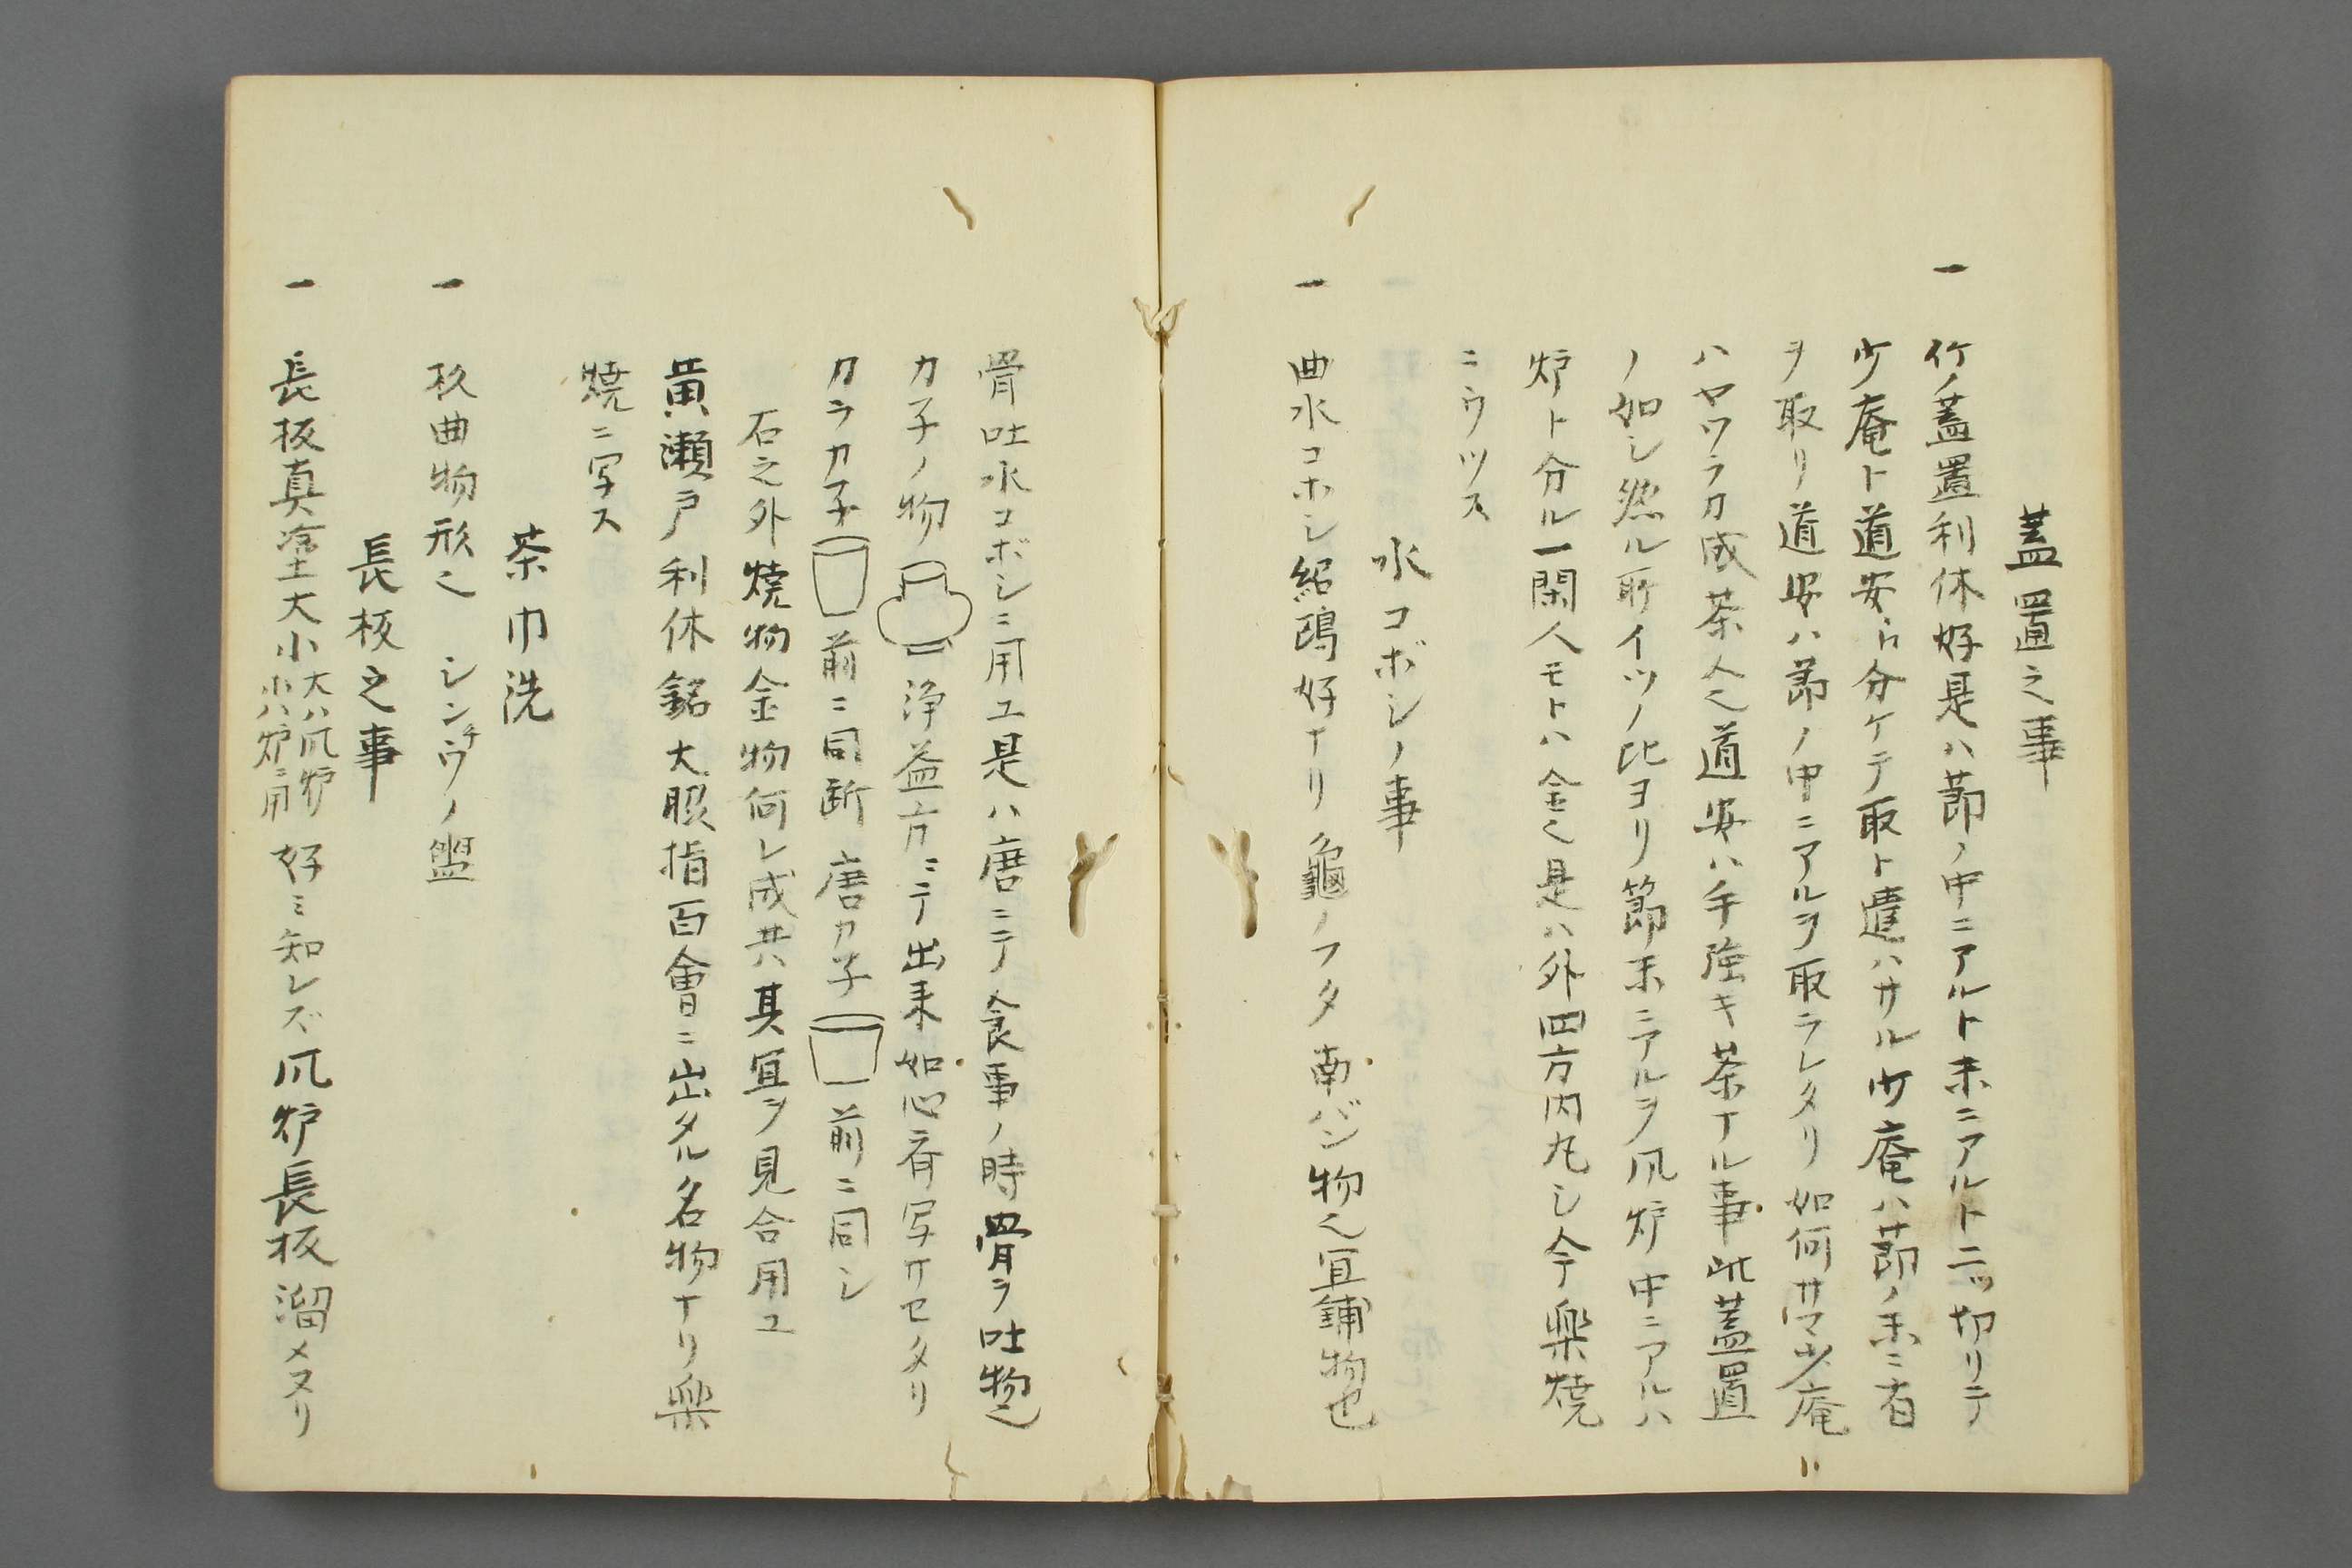 蓋置之事
一 竹ノ蓋置利休好是ハ節ノ中ニアルト末ニアルト二ツ切リテ
少庵ト道安ニ分ケテ取ト遣ハサル少庵ハ節ノ末ニ有
ヲ取リ道安ハ節ノ中ニアルヲ取ラレタリ如何サマ少庵
ハヤワラカ成茶人也道安ハ手強キ茶ナル事此蓋置
ノ如シ然ル所イツノ比ヨリ節末ニアルヲ風炉中ニアルハ
炉ト分ル一閑人モトハ金也是ハ外四方内丸シ今楽焼
ニウツス
水コボシノ事
一 曲水コホシ紹鴎好ナリ亀ノフタ南バン物也冝鋪物也
骨吐水コボシニ用ユ是ハ唐ニテ食事ノ時骨ヲ吐物也
カ子ノ物 浄益方ニテ出来如心斎写サセタリ
カラカ子 前ニ同断 唐カ子 前ニ同シ
石之外焼物金物何レ成共其冝ヲ見合用ユ
黄瀬戸利休銘大脇指百會ニ出タル名物ナリ楽
焼ニ写ス
茶巾洗
一 杉曲物形也 シンチウノ盥
長板之事
一 長板真塗大小 大ハ風炉 小ハ炉ニ用 好ミ知レズ風炉長板溜メヌリ